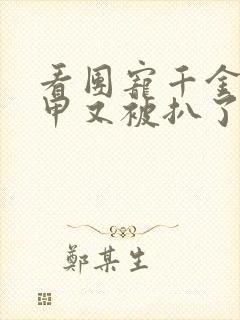 看团宠千金
甲又被扒了
鄭某生